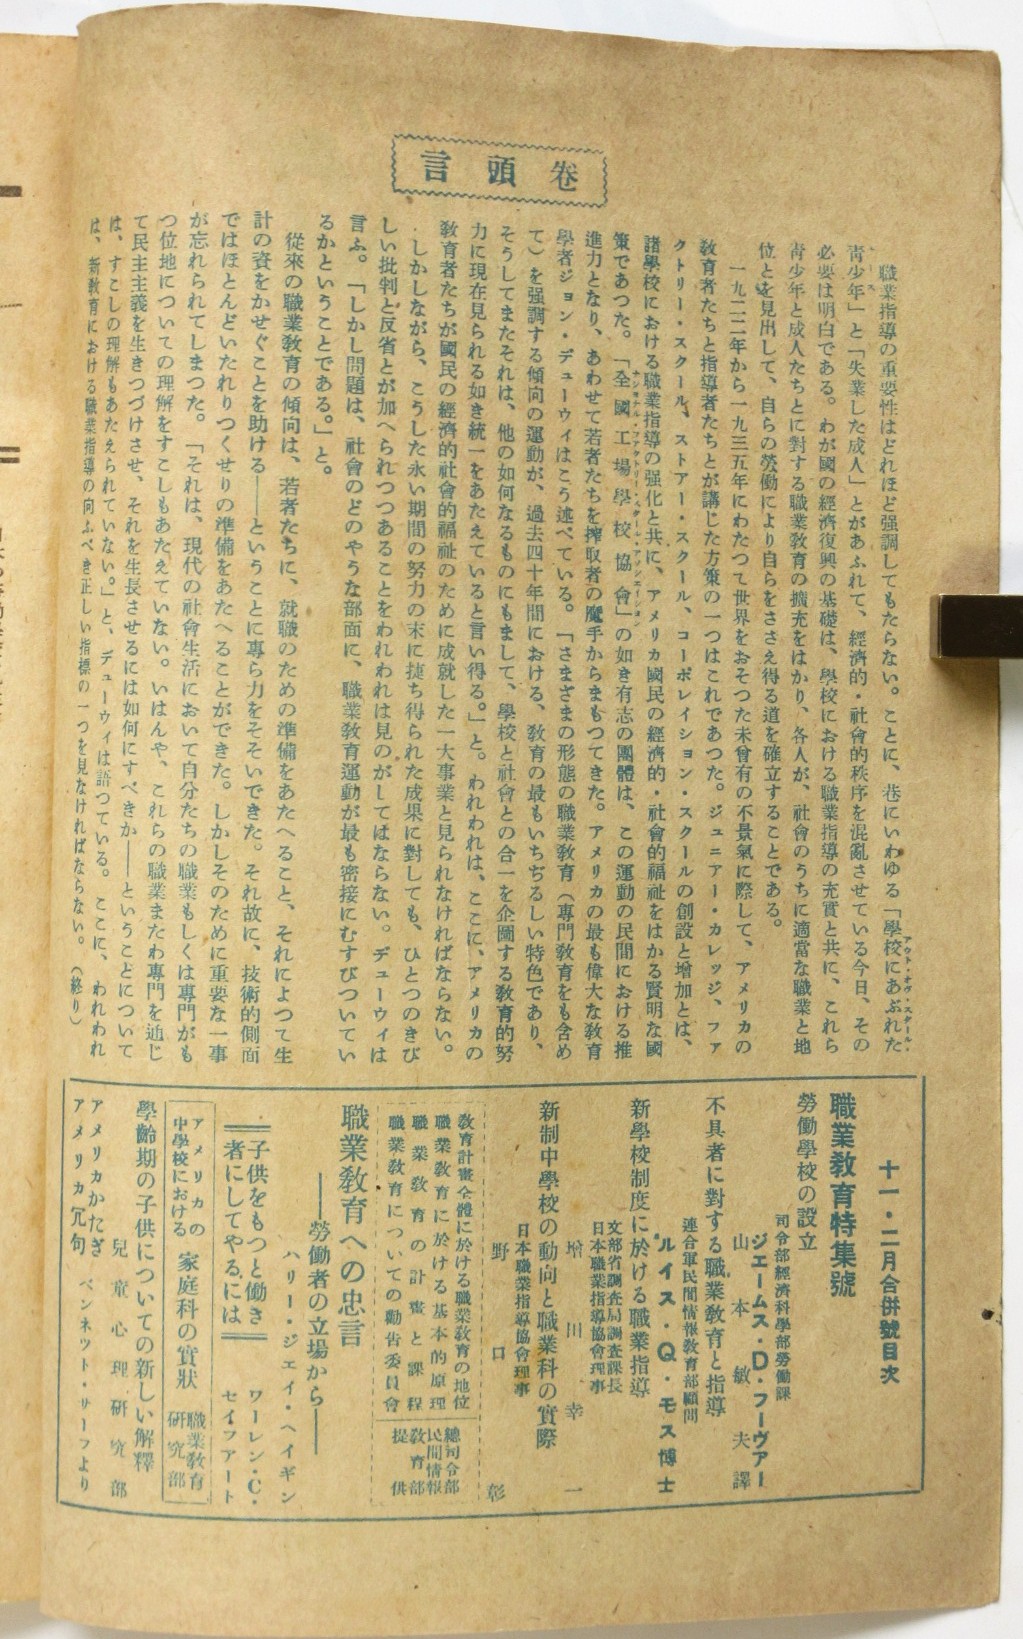 卷頭言
職業指導の重要性はどれほど强調してもたらない。ことに、巷にいわゆる「學校にあぶれた
アウト・オヴ・スクール・
靑少年」と「失業した成人」とがあふれて、經濟的・社會的秩序を混亂させている今日、その
必要は明白である。わが國の經濟復興の基礎は、學校における職業指導の充實と共に、これら
靑少年と成人たちとに對する職業敎育の擴充をはかり、各人が、社會のうちに適當な職業と地
位とを見出して、自らの勞働により自らをささえ得る道を確立することである。
一九二二年から一九三五年にわたつて世界をおそつた未曾有の不景氣に際して、アメリカの
敎育者たちと指導者たちとが講じた方策の一つはこれであつた。ジュニアー・カレッジ、ファ
クトリー・スクール、ストアー・スクール、コーポレイション・スクールの創設と增加とは、
諸學校における職業指導の强化と共に、アメリカ國民の經濟的・社會的福祉をはかる賢明な國
策であつた。「全國工場學校協會」の如き有志の團體は、この運動の民間における推
ナショナル・ファクトリー・スクール・アソシエイション
進力となり、あわせて若者たちを搾取者の魔手からまもつてきた。アメリカの最も偉大な敎育
學者ジョン・デューウィはこう述べている。「さまざまの形態の職業敎育(專門敎育をも含め
て)を强調する傾向の運動が、過去四十年間における、敎育の最もいちぢるしい特色であり、
そうしてまたそれは、他の如何なるものにもまして、學校と社會との合一を企圖する敎育的努
力に現在見られる如き統一をあたえていると言い得る。」と。われわれは、ここに、アメリカの
敎育者たちが國民の經濟的社會的福祉のために成就した一大事業と見られなければならない。
しかしながら、こうした永い期間の努力の末に捷ち得られた成果に對しても、ひとつのきび
しい批判と反省とが加へられつつあることをわれわれは見のがしてはならない。デューウィは
言ふ。「しかし問題は、社會のどのやうな部面に、職業敎育運動が最も密接にむすびついてい
るかということである。」と。
從來の職業敎育の傾向は、若者たちに、就職のための準備をあたへること、それによつて生
計の資をかせぐことを助ける――ということに專ら力をそそいできた。それ故に、技術的側面
ではほとんどいたれりつくせりの準備をあたへることができた。しかしそのために重要な一事
が忘れられてしまつた。「それは、現代の社會生活において自分たちの職業もしくは專門がも
つ位地についての理解をすこしもあたえていない。いはんや、これらの職業またわ專門を通じ
て民主主義を生きつづけさせ、それを生長させるには如何にすべきか――ということについて
は、すこしの理解もあたえられていない。」と、デューウィは語つている。ここに、われわれ
は、新敎育における職業指導の向ふべき正しい指標の一つを見なければならない。(終り)
十一・二月合併號目次
職業敎育特集號
勞働學校の設立
司令部經濟科學部勞働課
ジェームス・D・フーヴァー
山本敏夫譯
不具者に對する職業敎育と指導
連合軍民間情報敎育部顧問
ルイス・Q・モス博士
新學校制度に於ける職業指導
文部省調査局調査課長
日本職業指導協會理事
增川幸一
新制中學校の動向と職業科の實際
日本職業指導協會理事
野口彰
敎育計畫全體に於ける職業敎育の地位
職業敎育に於ける基本的原理
職業敎育の計畫と課程
職業敎育についての勸告委員會
總司令部
民間情報
敎育部
提供
職業敎育への忠言
――勞働者の立場から――
ハリー・ジェイ・ヘイギン
子供をもつと働き
者にしてやるには
ワーレン・C・
セイフアート
アメリカの
中學校における
家庭科の實狀
職業敎育
硏究部
學齡期の子供についての新しい解釋
兒童心理硏究部
アメリカかたぎ
アメリカ冗句
ベンネット・サーフより